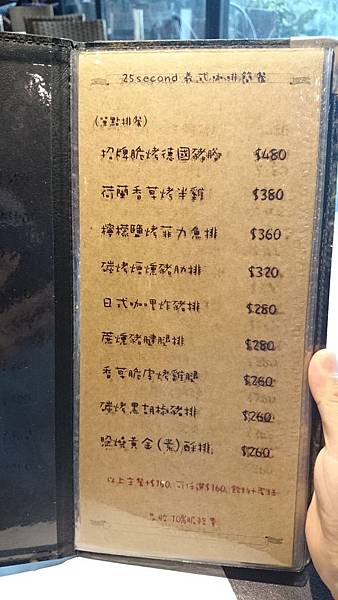 25second 義式咖啡簡餐
(單點排餐)
招牌脆烤德國豬腳 $480
荷蘭香草烤半雞 $380
檸檬鹽烤菲力魚排 $360
碳烤煙燻豬肋排 $320
日式咖哩炸豬排 $280
蔗燻豬腱腿排 $280
香草脆皮烤雞腿 $260
碳烤黑胡椒豬排 $260
鹽燒黃金(素)酥排 $260
以上主餐+$160, 可任選$160
10%服務費